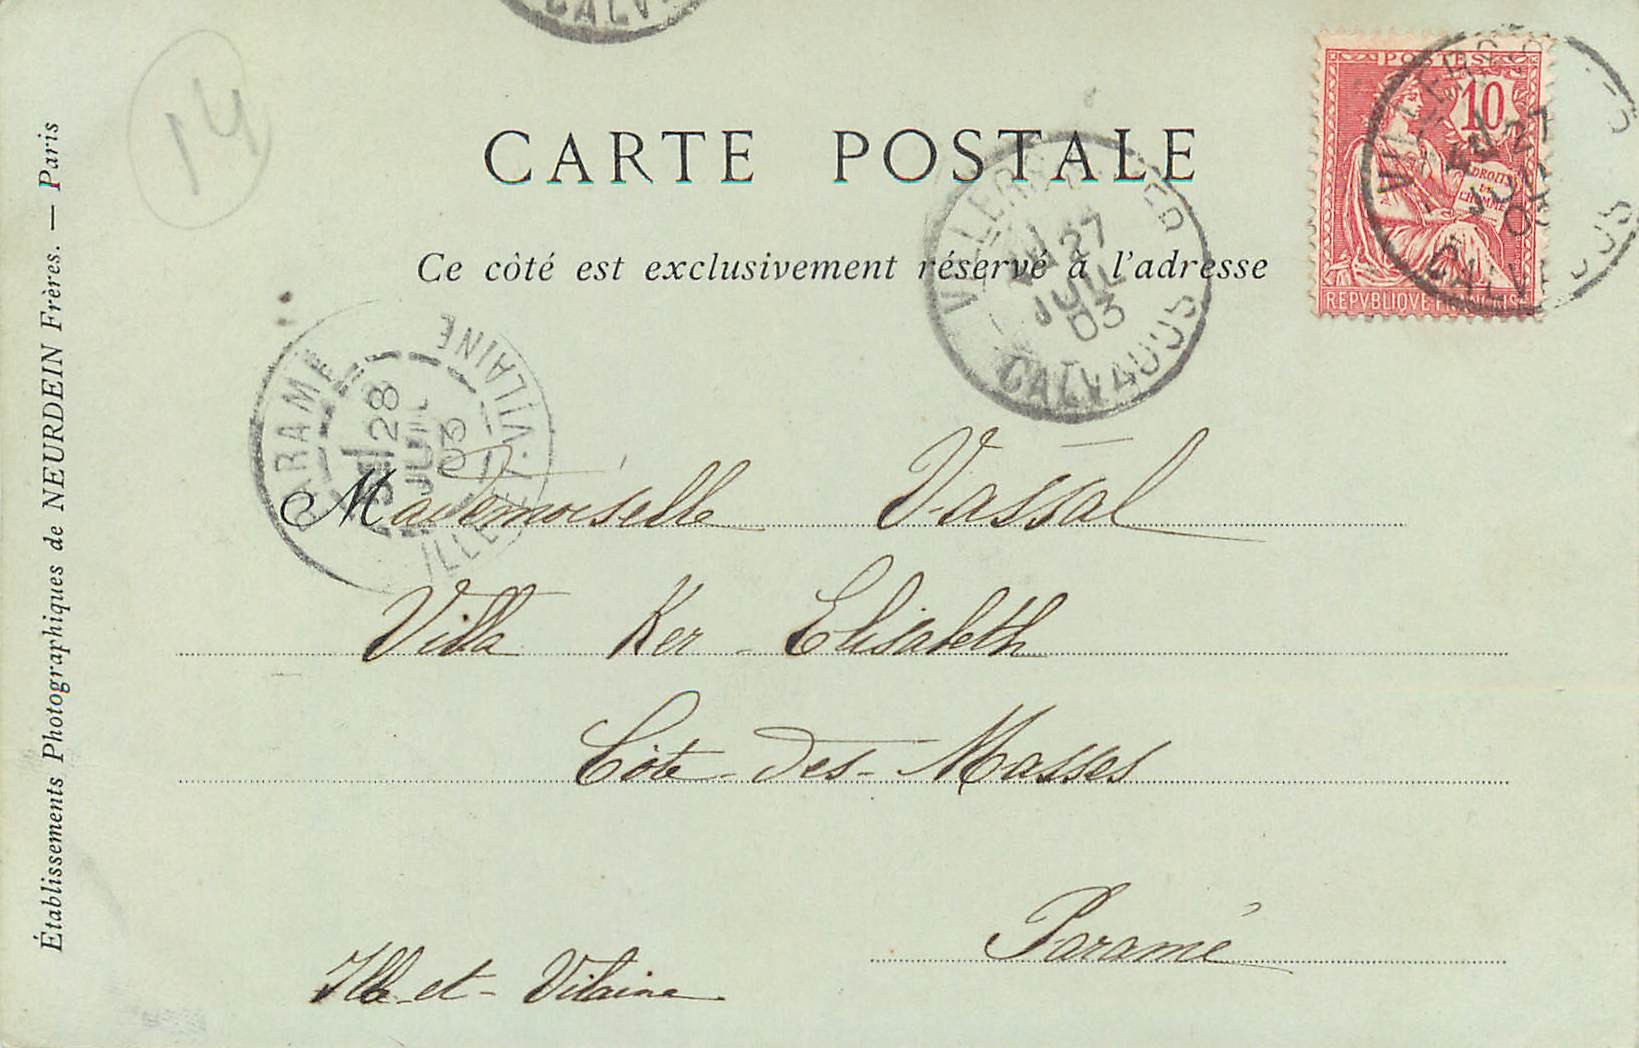 CALVA
14
CARTE POSTALE
Ce côté est exclusivement réservé à l'adresse
Établissements Photographiques de NEURDEIN Frères. — Paris
POSTES
10
DROITS
DE
L'HOMME
REPVBLIQVE FRANÇAISE
27
JUIL
CALVADOS
27
JUIL
03
CALVADOS
PARAMÉ
28
JUIL
03
ILLE-ET-VILAINE
Mademoiselle Vassal
Villa Ker-Elisabeth
Côte-des-Masses
Paramé
Ille-et-Vilaine